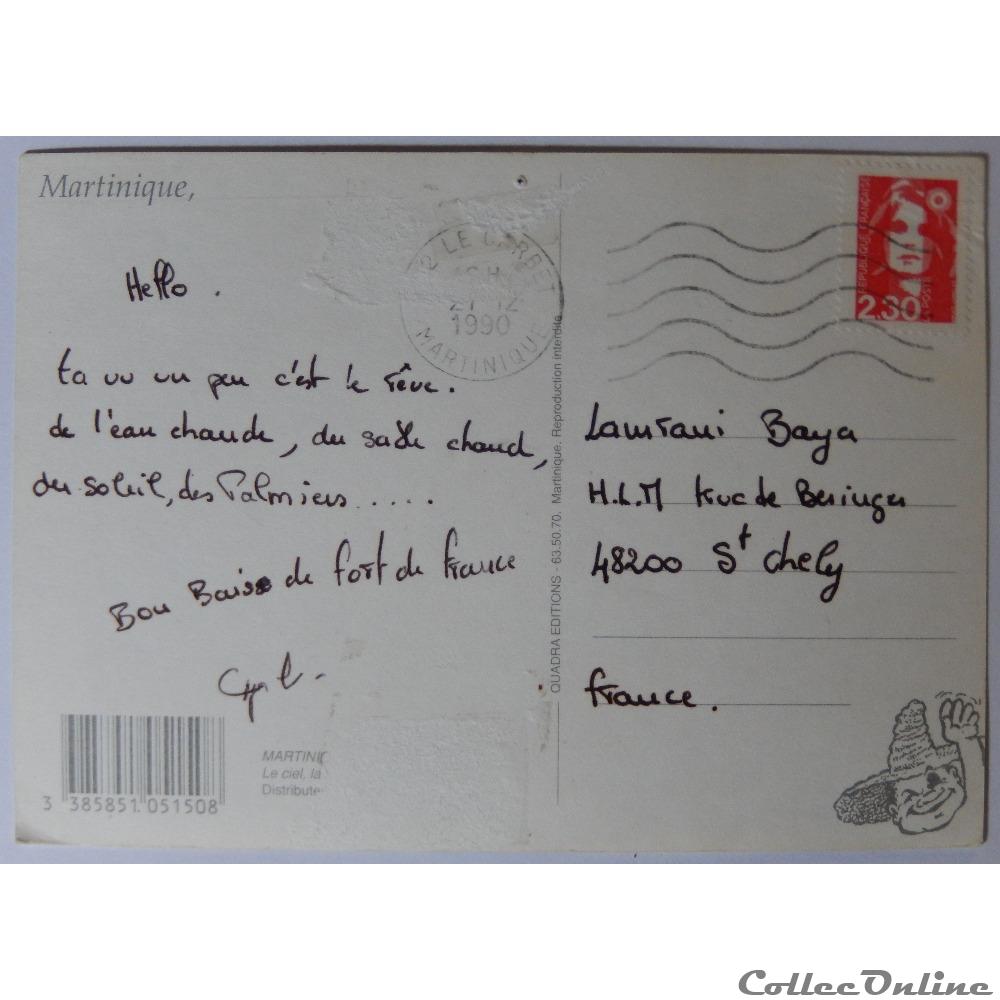 Martinique,
Hello .
ta vu un peu c'est le rêve.
de l'eau chaude, du sable chaud,
du soleil, des Palmiers .....
Bon Baise de Fort de France
MARTINI
Le ciel, la
Distribute
3 385851 051508
LE CARBET
21 12
1990
MARTINIQUE
QUADRA EDITIONS - 63.50.70. Martinique. Reproduction interdite
REPUBLIQUE FRANÇAISE
2,30
POSTE
Lamrani Baya
H.L.M Rue de Beringer
48200 St Chely
France.
CollecOnline